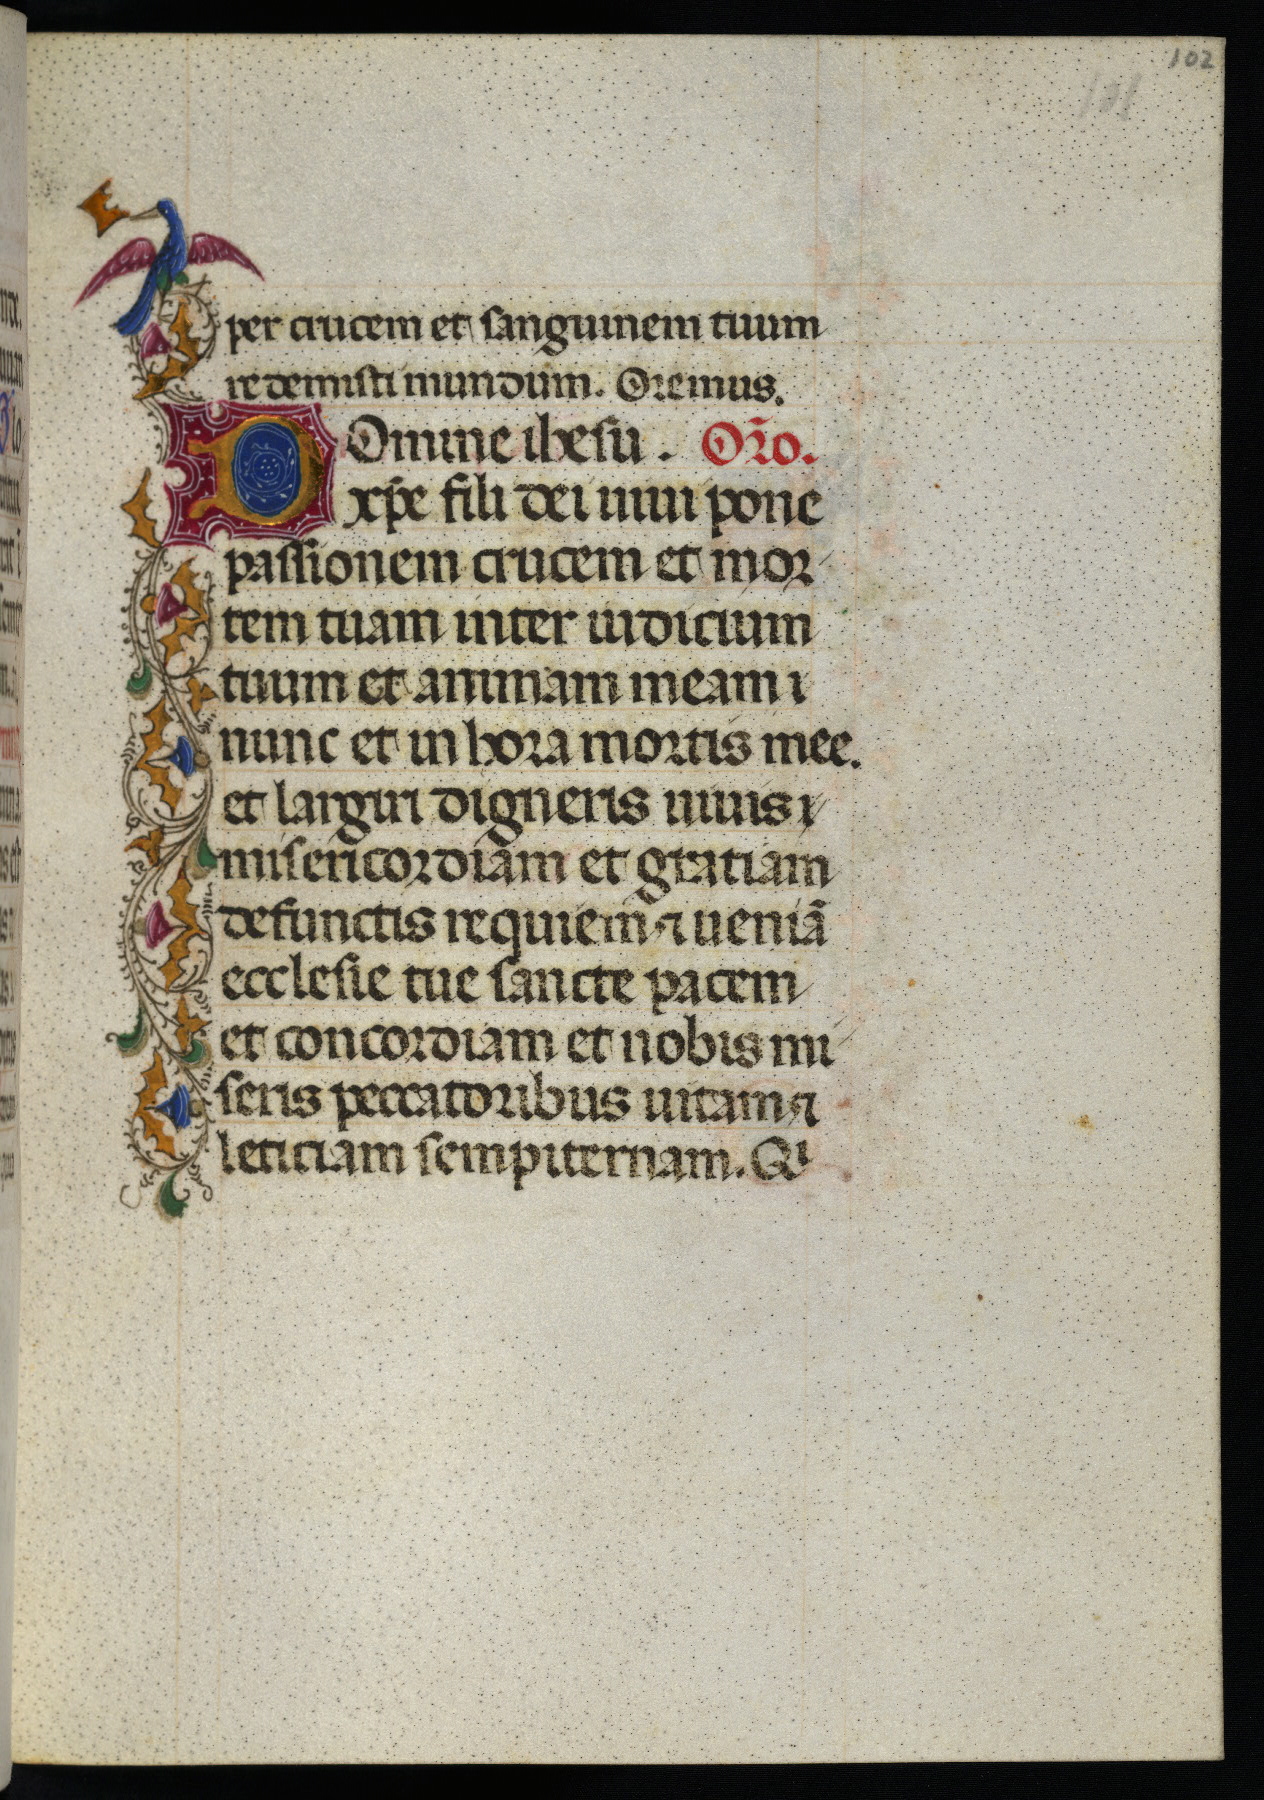 102
101
per crucem et sanguinem tuum
redemisti mundum. Oremus.
Domine ihesu. Or̃o.
xp̃e fili dei uiui pone
passionem crucem et mor
tem tuam inter iudicium
tuum et animam meam
nunc et in hora mortis mee.
et largiri digneris uiuis
misericordiam et gratiam
defunctis requiem ⁊ ueniã
ecclesie tue sancte pacem
et concordiam et nobis mi
seris peccatoribus uitam ⁊
leticiam sempiternam. Qui